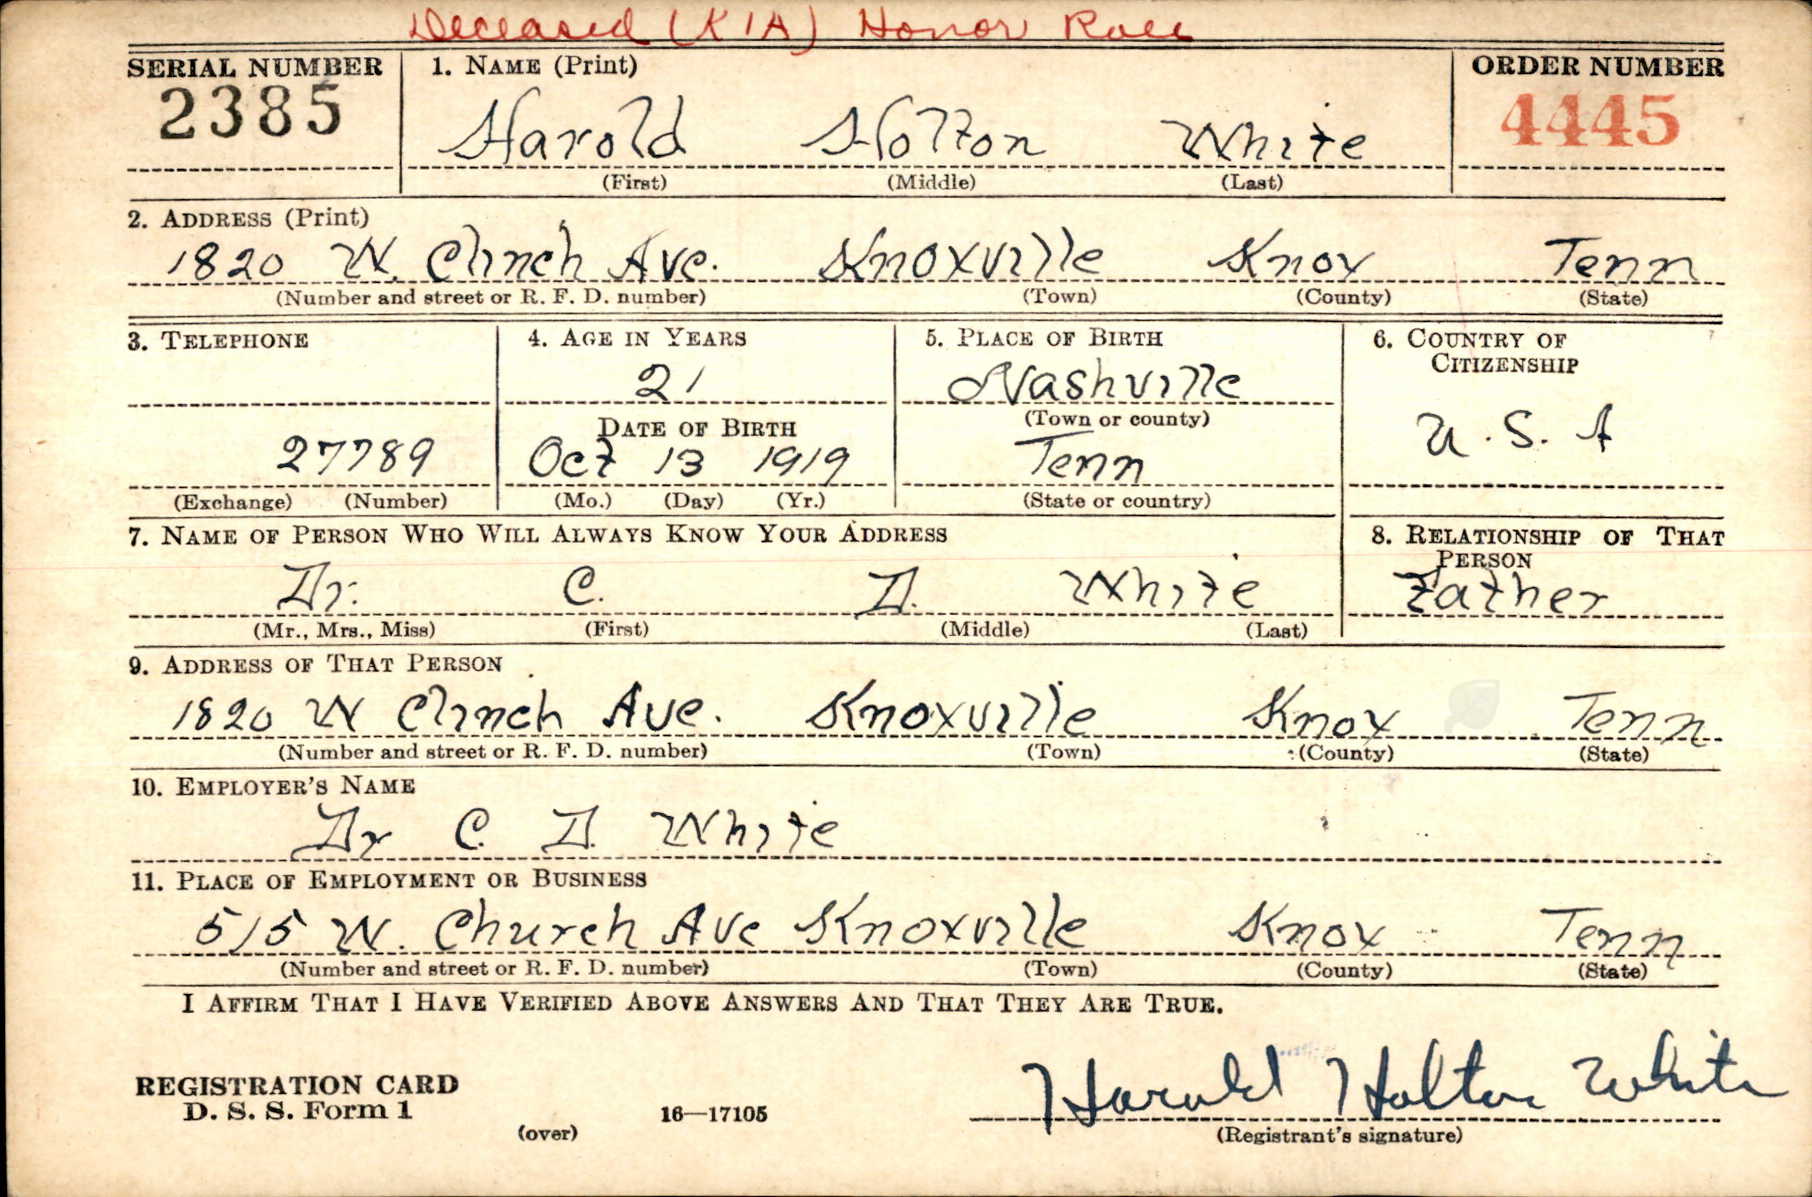 Deceased (KIA) Honor Roll
SERIAL NUMBER 1. NAME (Print) ORDER NUMBER
2385 Harold Holton White 4445
(First) (Middle) (Last)
2. ADDRESS (Print)
1820 W. Clinch Ave. Knoxville Knox Tenn
(Number and street or R. F. D. number) (Town) (County) (State)
3. TELEPHONE 4. AGE IN YEARS 5. PLACE OF BIRTH 6. COUNTRY OF CITIZENSHIP
21 Nashville
(Town or county)
DATE OF BIRTH U. S. A
27789 Oct 13 1919 Tenn
(Exchange) (Number) (Mo.) (Day) (Yr.) (State or country)
7. NAME OF PERSON WHO WILL ALWAYS KNOW YOUR ADDRESS 8. RELATIONSHIP OF THAT PERSON
Dr. C. D. White Father
(Mr., Mrs., Miss) (First) (Middle) (Last)
9. ADDRESS OF THAT PERSON
1820 W Clinch Ave. Knoxville Knox Tenn
(Number and street or R. F. D. number) (Town) (County) (State)
10. EMPLOYER'S NAME
Dr C. D. White
11. PLACE OF EMPLOYMENT OR BUSINESS
515 W. Church Ave Knoxville Knox Tenn
(Number and street or R. F. D. number) (Town) (County) (State)
I AFFIRM THAT I HAVE VERIFIED ABOVE ANSWERS AND THAT THEY ARE TRUE.
Harold Holton White
REGISTRATION CARD
D. S. S. Form 1 16—17105
(over) (Registrant's signature)